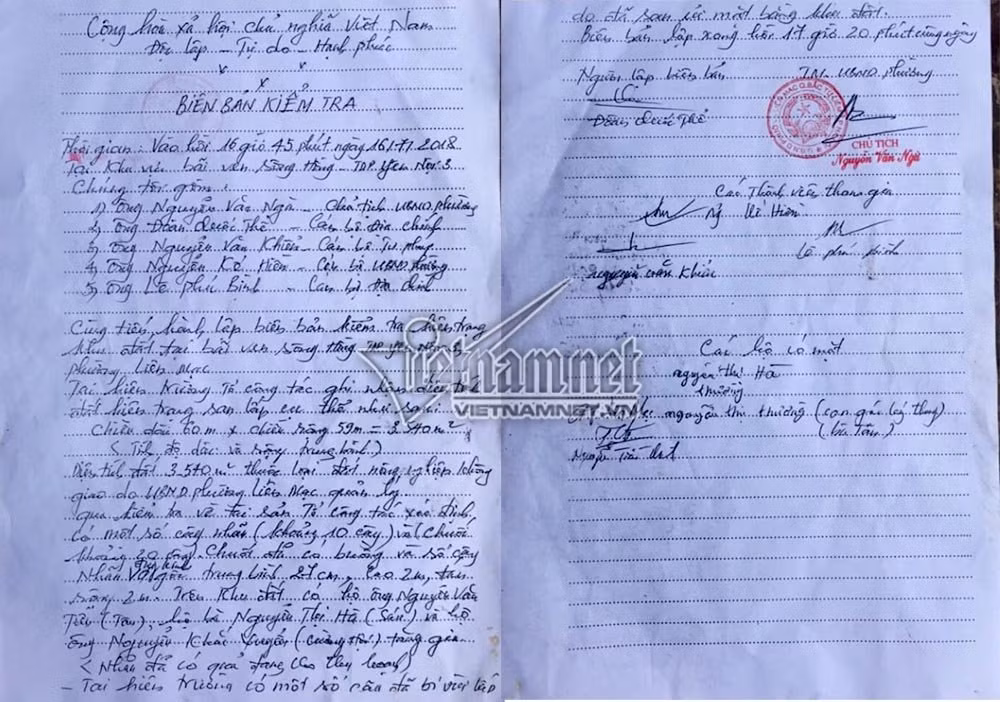 Cộng hòa xã hội chủ nghĩa Việt Nam
Độc lập - Tự do - Hạnh phúc
BIÊN BẢN KIỂM TRA
Thời gian: Vào hồi 16 giờ 45 phút ngày 16/7/2018
Tại Khu vực bãi ven sông Hồng - TDP Yên Nội 3
Chúng tôi gồm:
1) Ông Nguyễn Văn Ngà - Chủ tịch UBND phường
2) Ông Doãn Quốc Thể - Cán bộ Địa chính
3) Ông Nguyễn Văn Khiển - Cán bộ Tư pháp
4) Ông Nguyễn Hiền - Cán bộ UBND phường
5) Ông Lê Phú Bình - Cán bộ địa chính
Cùng tiến hành lập biên bản kiểm tra hiện trạng
khu đất tại bãi ven sông Hồng TDP Yên Nội 3,
phường Liên Mạc
Tại hiện trường Tổ công tác ghi nhận diện tích
đất hiện trạng san lấp cụ thể như sau:
Chiều dài 60m x chiều rộng 59m = 3.540m²
(Tính độ dài và rộng trung bình)
Diện tích đất 3.540m² thuộc loại đất nông nghiệp không
giao do UBND phường Liên Mạc quản lý
qua kiểm tra về tài sản Tổ công tác xác định
có một số cây nhãn (khoảng 10 cây) và (chuối
khoảng 20 cây. Chuối đã có buồng và số cây
Nhãn trung bình 27cm, cao 2m, tán
rộng 2m. Trên khu đất có hộ ông Nguyễn Văn
(Tân), hộ bà Nguyễn Thị Hà (Sán) và hộ
ông Nguyễn Khắc tăng gia
(Nhãn đã có quả đang cho thu hoạch)
- Tại hiện trường có một số cây đã bị vùi lấp
do đã san ủi mặt bằng khu đất.
Biên bản lập xong hồi 17 giờ 20 phút cùng ngày
Người lập biên bản
TM. UBND phường
Doãn Quốc Thể
CHỦ TỊCH
Nguyễn Văn Ngà
Các thành viên tham gia
Hiền
Lê phú bình
nguyễn văn Khiển
Các hộ có mặt
nguyễn thị Hà
thường
nguyễn thị thường (con gái
(bà Tân)
Nguyễn Tiến
Vietnamnet
VIETNAMNET.VN